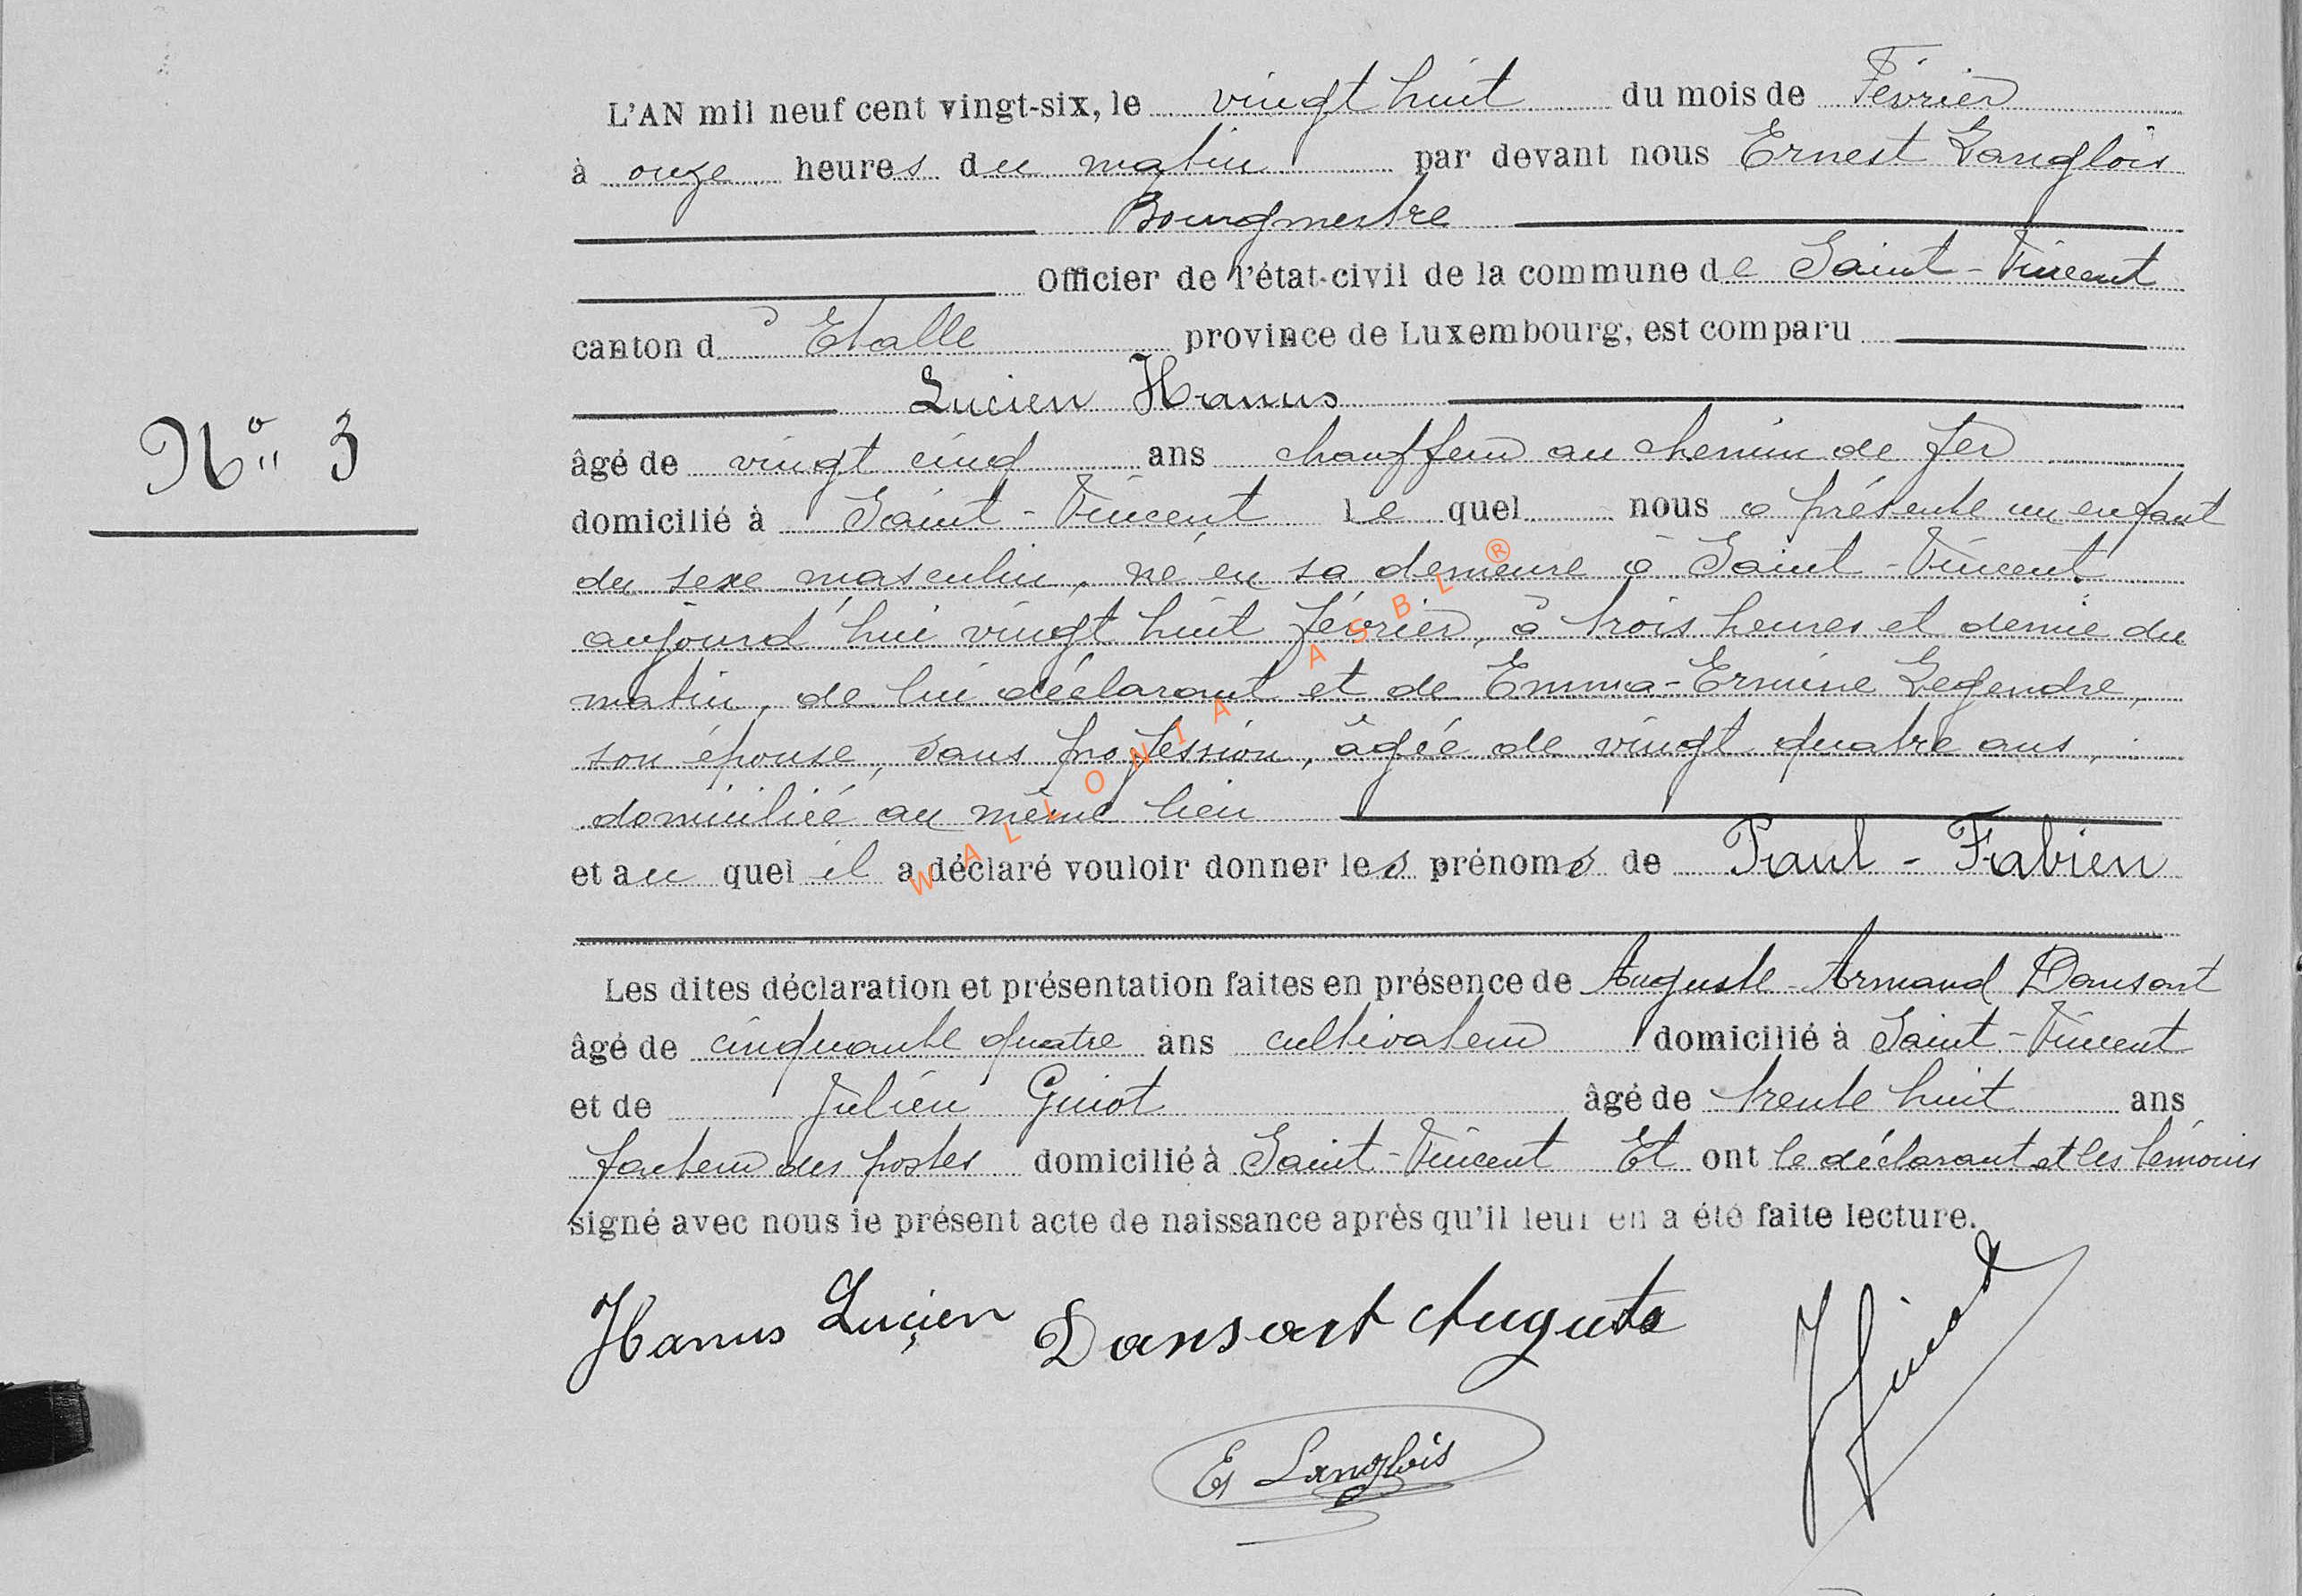 L'AN mil neuf cent vingt-six, le vingt huit du mois de Février
à onze heures du matin par devant nous Ernest Langlois
Bourgmestre
Officier de l'état-civil de la commune de Saint-Vincent
canton d' Etalle province de Luxembourg, est comparu
Lucien Hanus
N° 3
âgé de vingt cinq ans chauffeur au chemin de fer
domicilié à Saint-Vincent le quel nous a présenté un enfant
du sexe masculin, né en sa demeure à Saint-Vincent
aujourd'hui vingt huit février, à trois heures et demie du
matin, de lui déclarant et de Emma-Ermine Legendre,
son épouse, sans profession, âgée de vingt quatre ans,
domiciliée au même lieu
et au quel il a déclaré vouloir donner les prénoms de Paul-Fabien
Les dites déclaration et présentation faites en présence de Auguste-Armand Dansart
âgé de cinquante quatre ans cultivateur domicilié à Saint-Vincent
et de Julien Guiot âgé de trente huit ans
facteur des postes domicilié à Saint-Vincent Et ont le déclarant et les témoins
signé avec nous le présent acte de naissance après qu'il leur en a été faite lecture.
Hanus Lucien Dansart Auguste JGuiot
E Langlois
WALLONIA ASBL ®